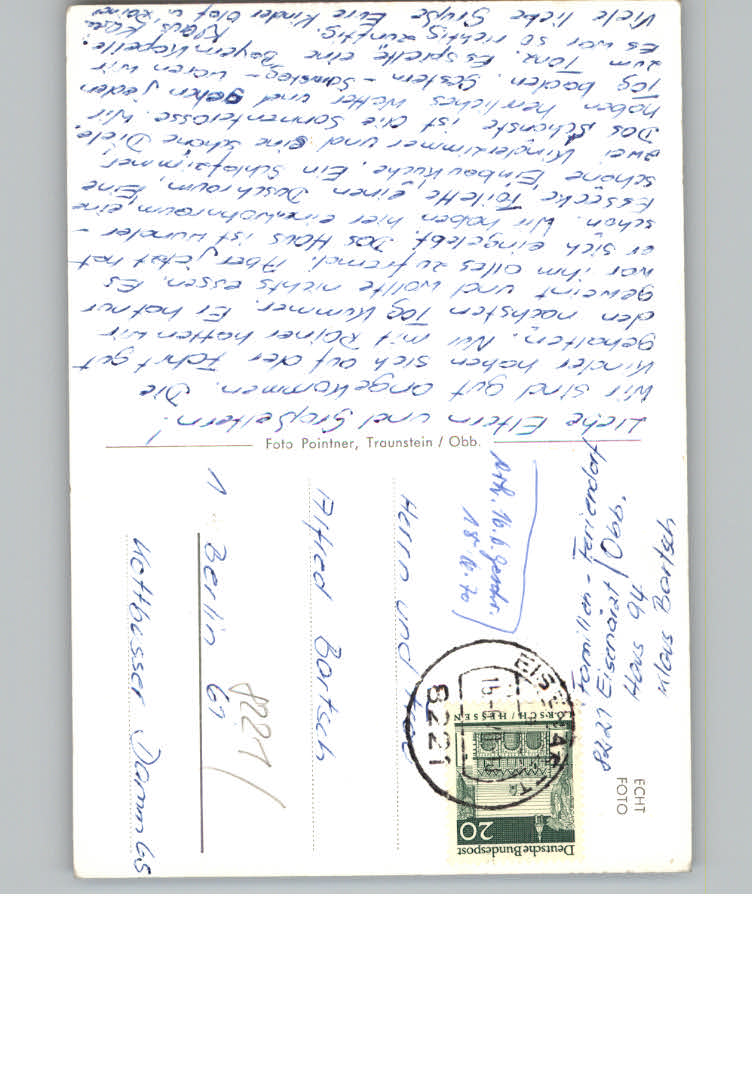 Liebe Eltern und Großeltern!
Wir sind gut angekommen. Die
Kinder haben sich auf der Fahrt gut
gehalten. Nur mit Rainer hatten wir
den nächsten Tag Kummer. Er hat nur
geweint und wollte nichts essen. Es
war ihm alles zu fremd. Aber jetzt hat
er sich eingelebt. Das Haus ist wunder-
schön. Wir haben hier ein Wohnraum, eine
Essecke, Toilette, einen Duschraum, eine
schöne Einbauküche. Ein Schlafzimmer,
zwei Kinderzimmer und eine schöne Diele.
Das schönste ist die Sonnenterasse. Wir
haben herrliches Wetter und gehn jeden
Tag baden. Gestern - Samstag - waren wir
zum Tanz. Es spielte eine Bayernkapelle.
Es war so richtig zünftig.
Viele liebe Grüße Eure Kinder Olaf u. Rainer
Klaus,
Foto Pointner, Traunstein / Obb.
ECHT
FOTO
Familien-Feriendorf
8221 Eisenärzt / Obb.
Haus 94
Klaus Bartsch
Deutsche Bundespost
20
LORSCH / HESSEN
8221
Herrn und Frau
Alfred Bartsch
1 Berlin 61
Kottbusser Damm 68
8221